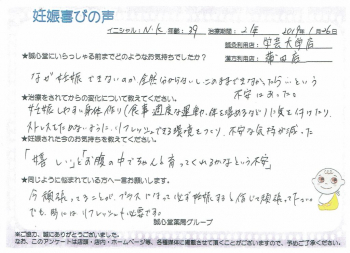 妊娠喜びの声
イニシャル:N.K 年齢:39 治療期間:2年 2019年1月26日
鍼灸利用店:学芸大学店
漢方利用店:蒲田店
★誠心堂にいらっしゃる前までどのようなお気持ちでしたか?
なぜ妊娠できないのか全然わからないしこのままできなかったら…という
不安はあった。
★治療をされてからの変化について教えてください。
妊娠しやすい身体作り(食事、適度な運動、体を温めるなど)に気を付けたり、
ストレスをためないように、リフレッシュできる環境をつくり、不安な気持が減った
★妊娠された今のお気持ちを教えてください。
「嬉しい」と「お腹の中でちゃんと育ってくれるかなという不安」
★同じように悩まされている方へ一言お願いします。
今頑張ってることが、プラスになって必ず妊娠すると信じて頑張って下さい。
でも、時には リフレッシュも必要です。
誠心堂薬局グループ
※ご協力、誠にありがとうございました。
なお、このアンケートは店頭・店内・ホームページ等、各種媒体に掲載させて頂くことがございますので、予めご了承ください。